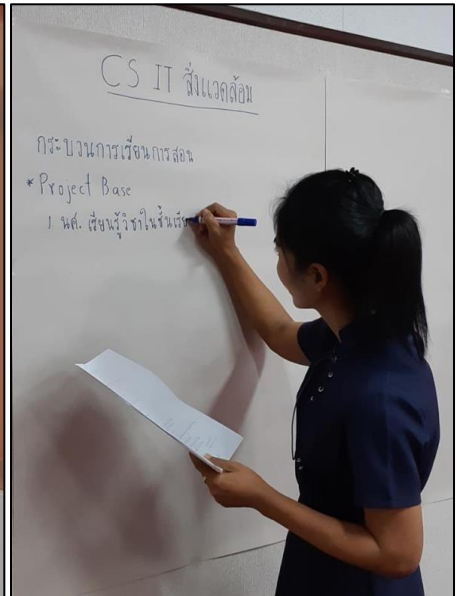 CS IT สิ่งแวดล้อม
กระบวนการเรียนการสอน
* Project Base
1 นศ. เรียนรู้วิชาในชั้นเรีย